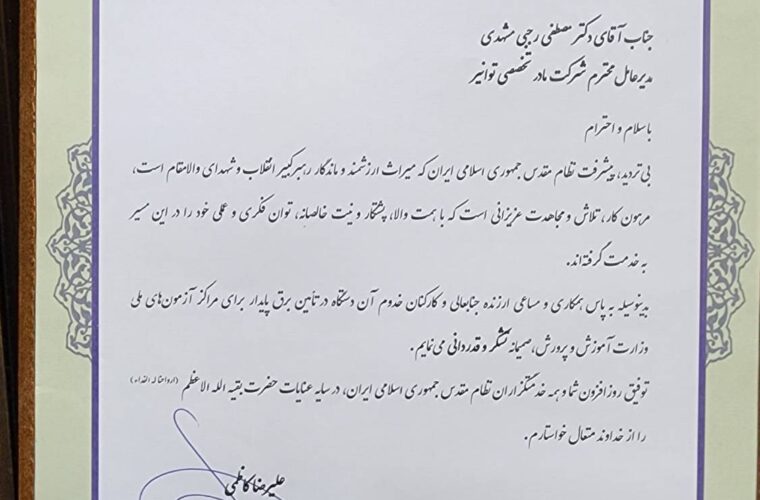 جناب آقای دکتر مصطفی رجبی مشهدی
مدیرعامل محترم شرکت مادر تخصصی توانیر
با سلام و احترام
بی تردید، پیشرفت نظام مقدس جمهوری اسلامی ایران که میراث ارزشمند و ماندگار رهبر کبیر انقلاب و شهدای والامقام است،
مرهون کار، تلاش و مجاهدت عزیزانی است که با همت والا، پشتکار و نیت خالصانه، توان فکری و عملی خود را در این مسیر
به خدمت گرفته‌اند.
بدینوسیله به پاس همکاری و مساعی ارزنده جنابعالی و کارکنان خدوم آن دستگاه در تأمین برق پایدار برای مراکز آزمون‌های ملی
وزارت آموزش و پرورش، صمیمانه تشکر و قدردانی می‌نمایم.
توفیق روزافزون شما و همه خدمتگزاران نظام مقدس جمهوری اسلامی ایران، در سایه عنایات حضرت بقیه الله الاعظم (ارواحنا له الفداء)
را از خداوند متعال خواستارم.
علیرضا کاظمی